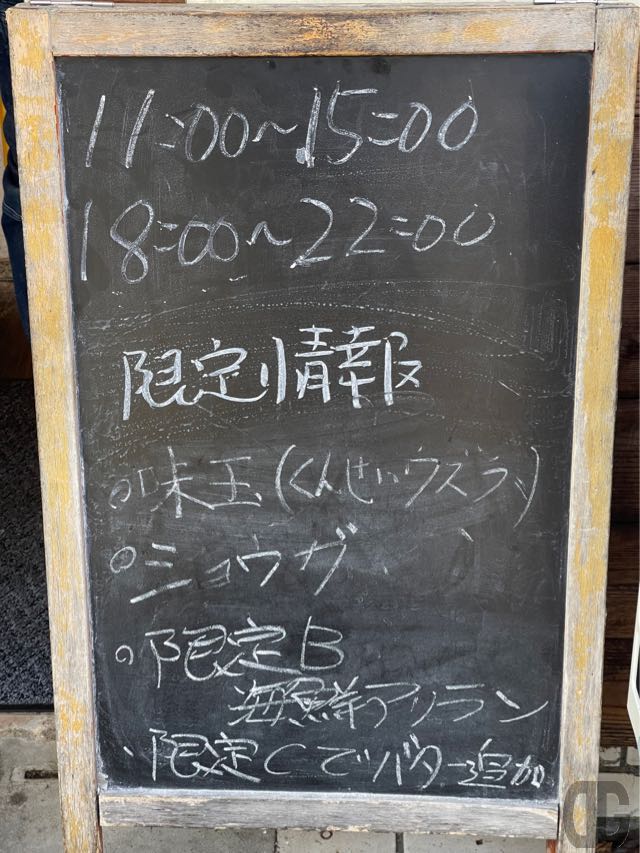 11:00〜15:00
18:00〜22:00
限定情報
◦味玉(くんせいウズラ)
◦ショウガ
◦限定B
海鮮アリラン
、限定Cでバター追加
DC